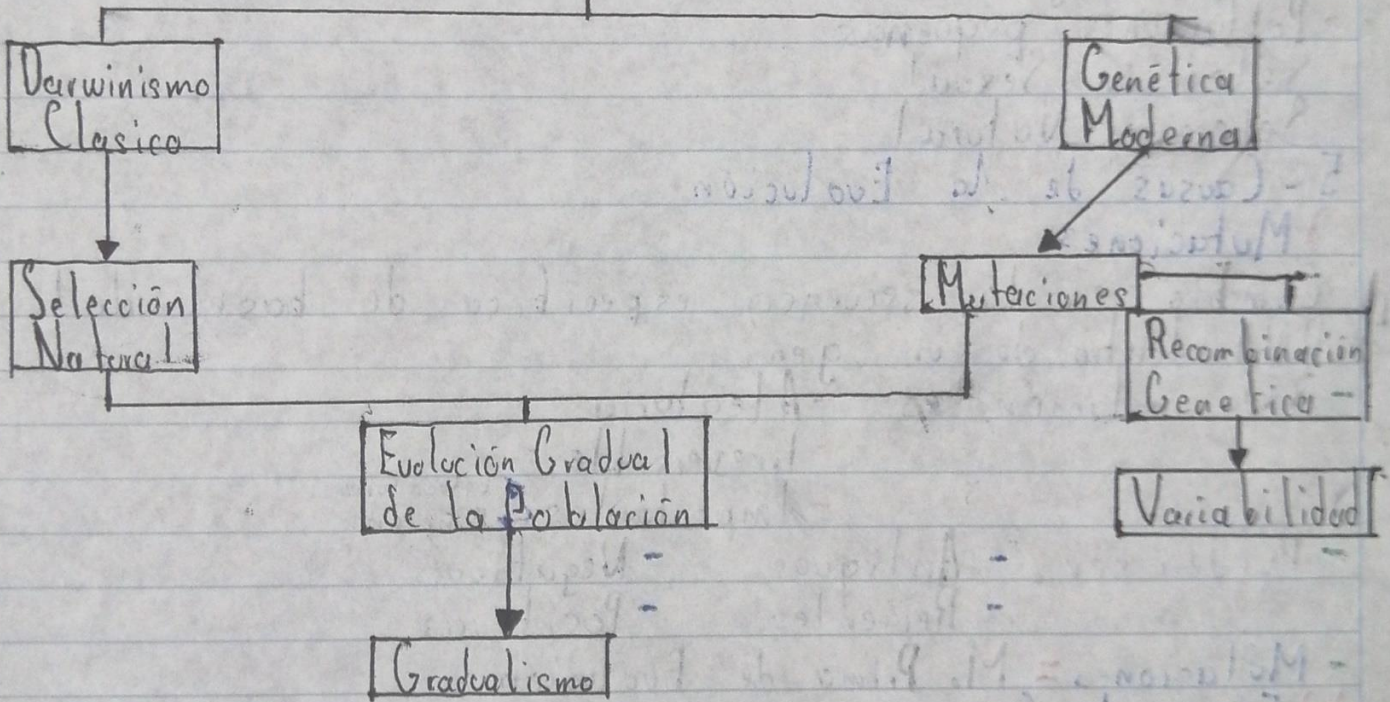 Darwinismo
Clasico
Genética
Moderna
Selección
Natural
Mutaciones
Recombinación
Genetica -
Evolución Gradual
de la Población
Variabilidad
Gradualismo